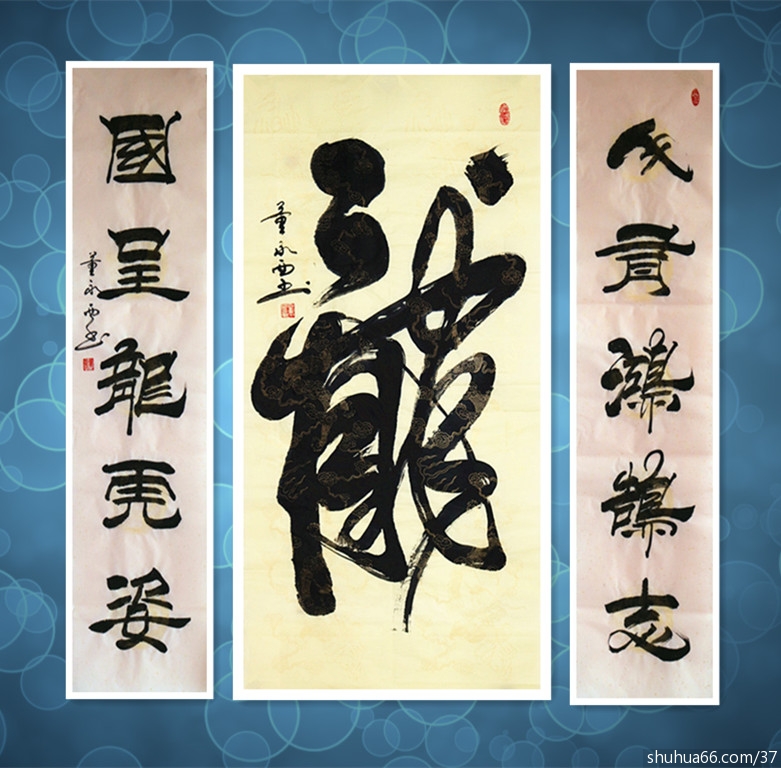 有鴻鵠志
龍
董永西书
國呈龍虎姿
董永西书
shuhua66.com/37